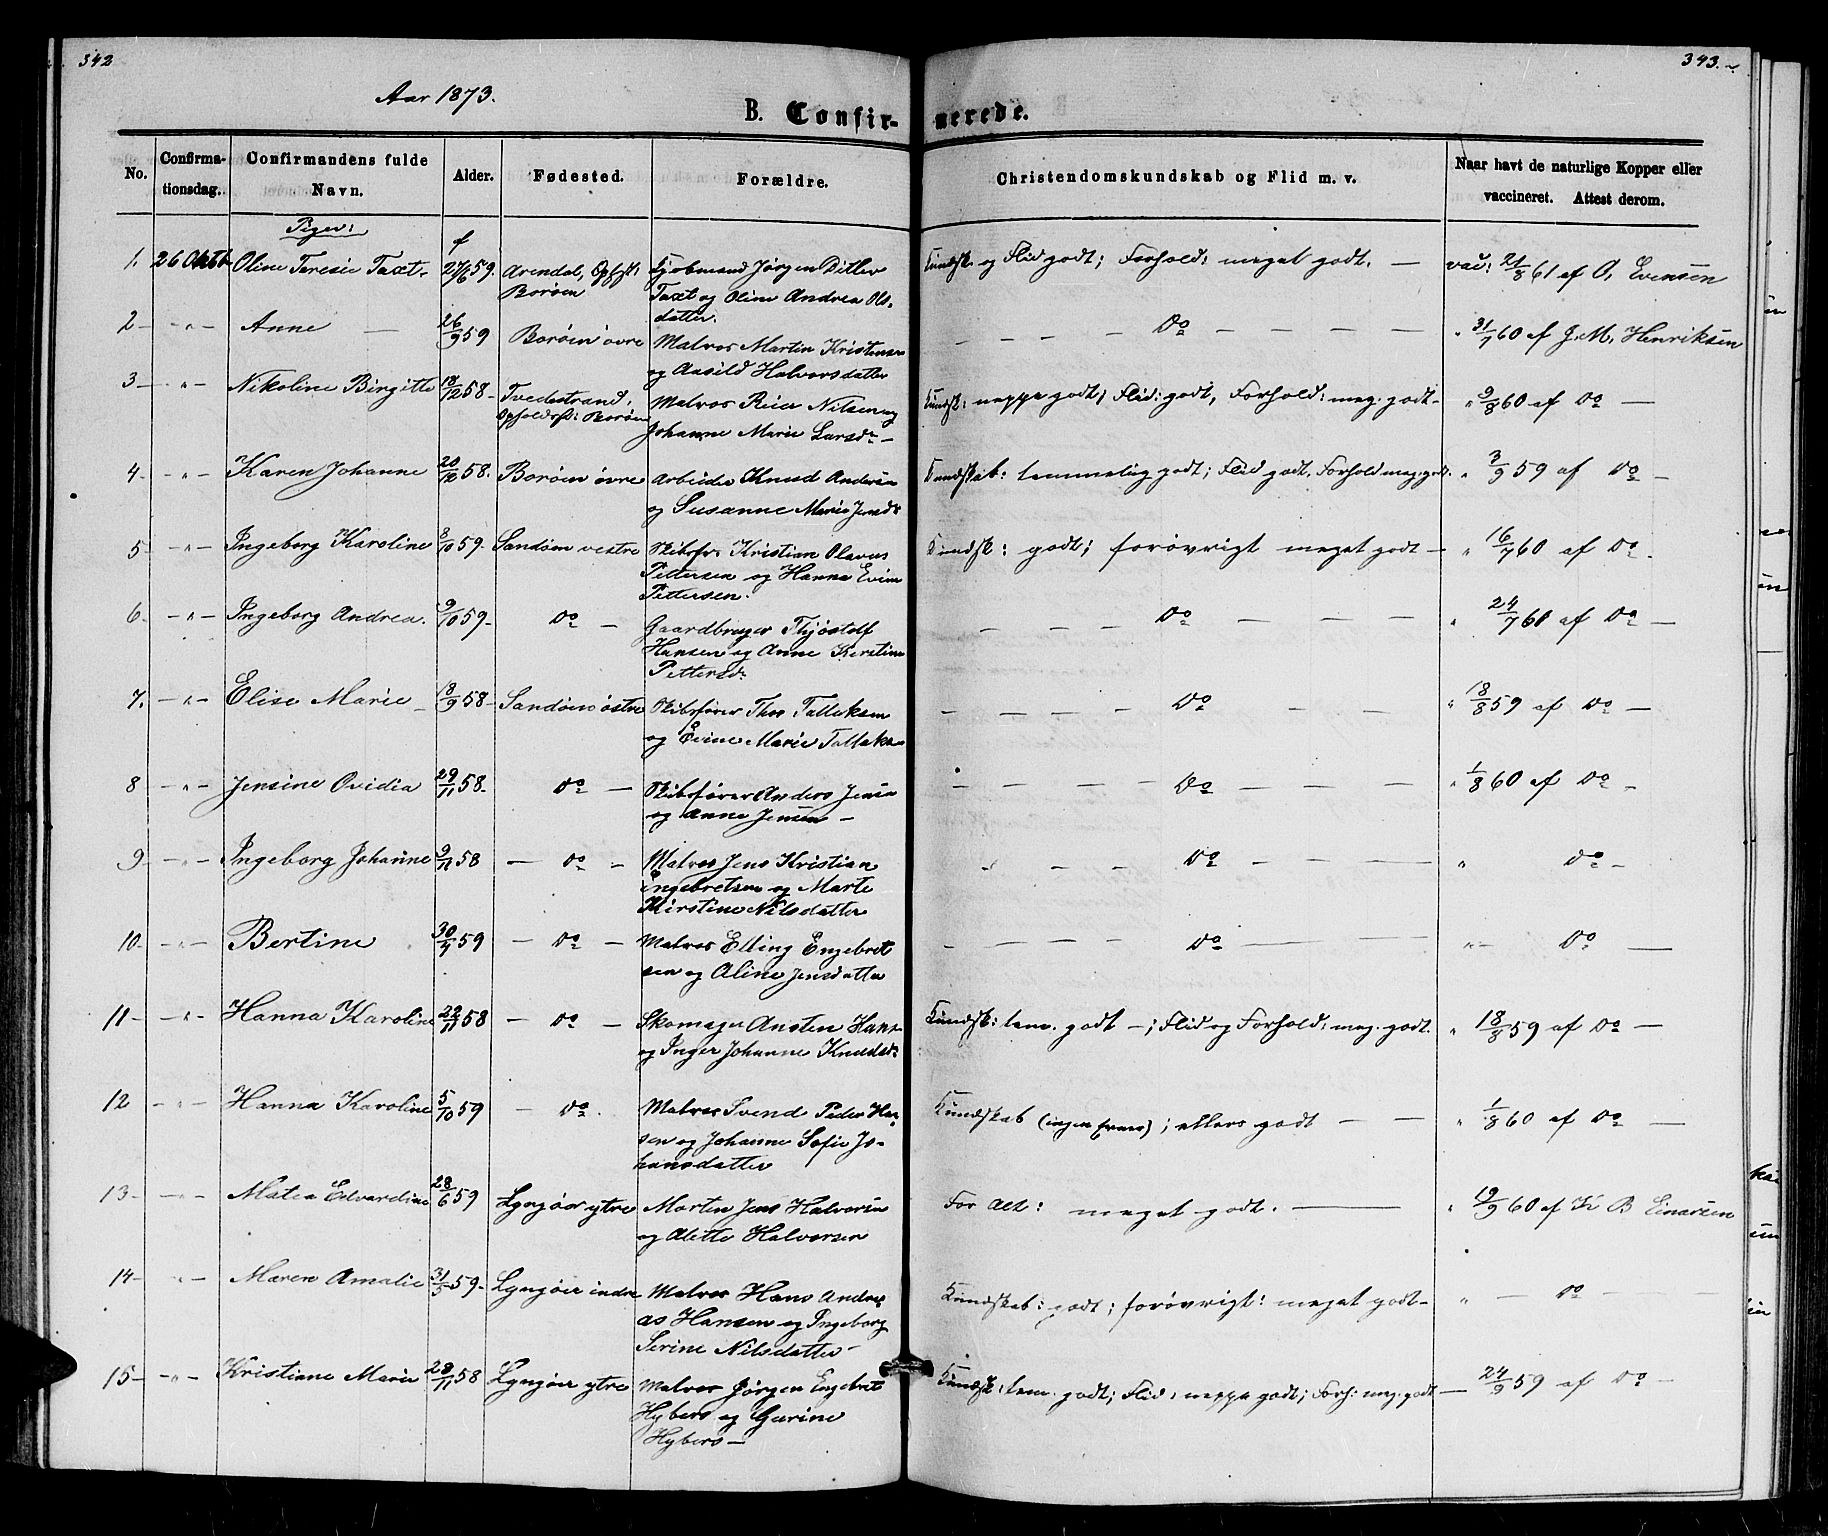 342
343.
Aar 1873.
B. Confir-
merede.
No.
Confirma-
tionsdag.
Confirmandens fulde
Navn.
Alder.
Fødested.
Forældre.
Christendomskundskab og Flid m. v.
Naar havt de naturlige Kopper eller
vaccineret. Attest derom.
Piger:
f
1. 26 Oktb Oline Teresie Taxt- 27/6 59. Arendal, Opfst: Kjøbmand Jørgen Ditlev Kundsk. og Flid godt; Forhold: meget godt. — vac: 21/8 61 af O. Evensen
Borøen Taxt og Oline Andrea Ols-
datter.
2 — " — Anne — 26/9 59 Borøen øvre Matros Martin Kristensen — — — Do — — — — " 31/7 60 af J. M. Henriksen
og Aasild Halvorsdatter
3 — " — Nikoline Birgitte 18/12 58 - Tvedestrand, Matros Reier Nilsen og Kundsk: neppe godt; Flid: godt, Forhold: meg. godt - " 9/8 60 af Do —
Opholdsst: Borøen Johanne Marie Larsdr —
4 - — " — Karen Johanne 20/10 58. Borøen øvre Arbeider Knud Andersen Kundskab: temmelig godt; Flid godt, Forhold meg. godt. " 3/9 59 af Do —
og Susanne Marie Jensdr
5 - — " — Ingeborg Karoline 8/10 59 - Sandøen vestre Skibsfr Kristian Olavus Kundsk: godt; forøvrigt meget godt — " 16/7 60 af Do -
Pettersen og Hanna Evine
Pettersen.
6 - — " — Ingeborg Andrea. 9/10 59 - Do — Gaardbruger Thjostolf — — — — Do — — — " 24/7 61 af Do —
Hansen og Anne Kerstine
Pettersdr
7. — " — Elise Marie - 18/9 58 - Sandøen østre Skibsfører Thor Tallaksen — — — — Do — — — " 18/8 59 af Do —
og Evine Marie Tallaksen
8 — " — Jensine Ovidia 29/11 58. Do — Skibsfører Anders Jensen — — — — Do — — — " 1/8 60 af Do -
og Anne Jensen —
9 - — " — Ingeborg Johanne 9/11 58 — Do - Matros Jens Kristian — — — Do — — — " Do -
Engebretsen og Marte
Kirstine Nilsdatter
10 - — " — Bertine 30/4 59 — Do — Matros Elling Engebret — — — — Do — " — Do —
sen og Aline Jensdatter
11 - — " — Hanna Karoline 22/11 58 — Do — Skomager Ansten Hans- Kundsk: tem. godt —; Flid og Forhold: meg. godt. " 18/8 59 af Do —
og Inger Johanne Knudsdr
12 — " — Hanna Karoline 5/10 59 — Do. Matros Svend Peder Han- Kundskab (ingen ); ellers godt — — " 1/8 60 af Do —
sen og Johanne Sofie Jo-
hansdatter
13 - — " — Matea Edvardine 28/6 59 Lyngøer ytre Morten Jens Halvorsen For Alt: meget godt. — " 19/9 60 af K B Einarsen
og Alette Halvorsen
14 - " — Maren Amalie 31/5 59 - Lyngøer indre Matros Hans Andre- Kundskab: godt; forøvrigt: meget godt - " — Do — —
as Hansen og Ingeborg
Serine Nilsdatter -
15 - — " — Kristiane Marie 28/11 58 Lyngøer ytre Matros Jørgen Engebret Kundsk: tem. godt; Flid: neppe godt; Forh: meg. godt — 24/9 59 af Do —
Hybers og Gurine
Hybers —